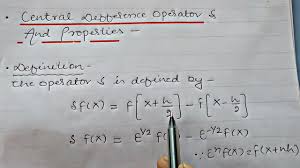 Central Defference Operator δ
And Properties -
• Defination -
The operator δ is defined by -
δ f(x) = f[x+h/2] - f[x-h/2]
δ f(x) = E^{1/2} f(x) - E^{-1/2} f(x)
∵ E^n f(x) = f(x+nh)